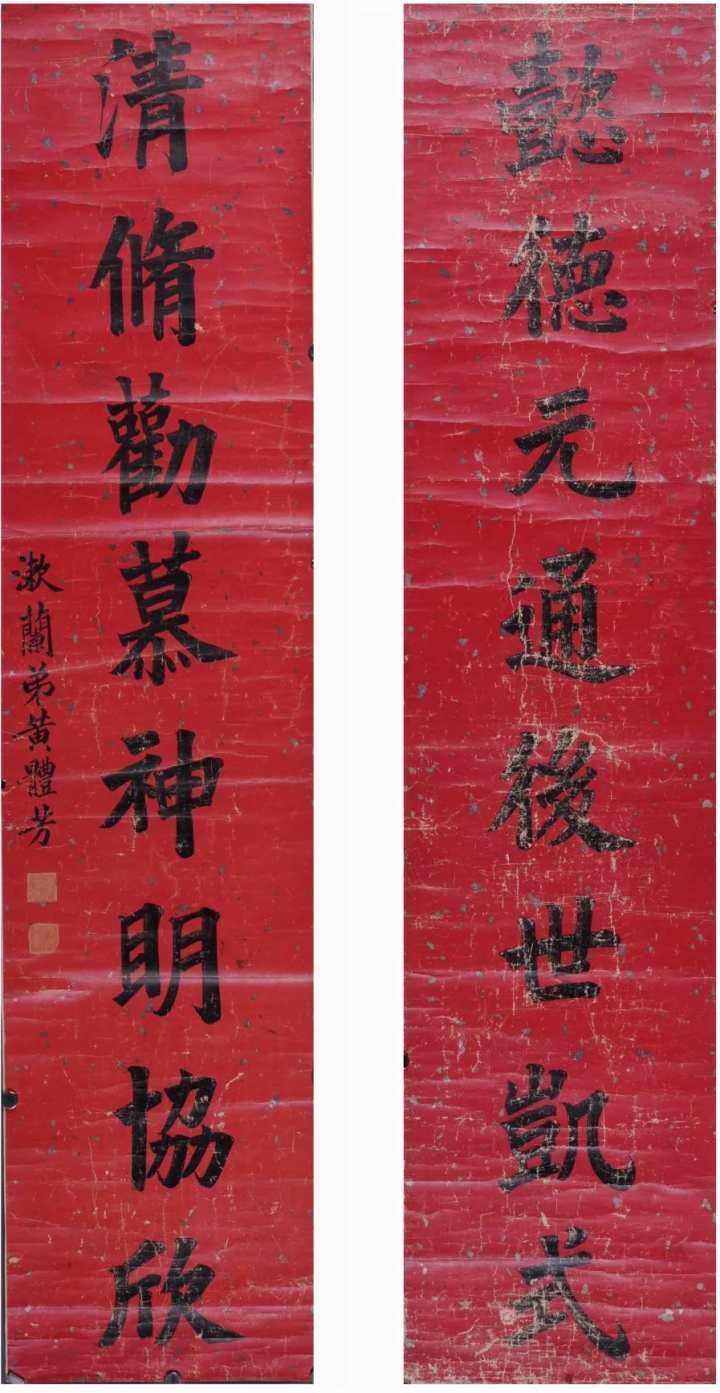 懿德元通後世凱式
清脩勸慕神明協欣
漱蘭弟黃體芳